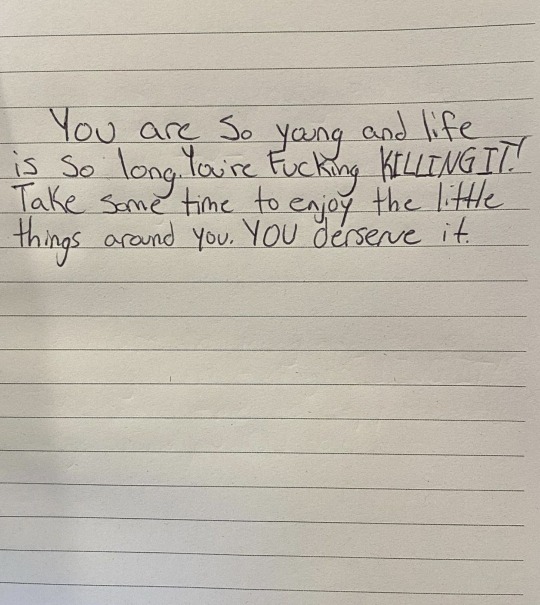 You are So young and life
is So long. You're Fucking KILLING IT!
Take some time to enjoy the little
things around you. YOU derserve it.